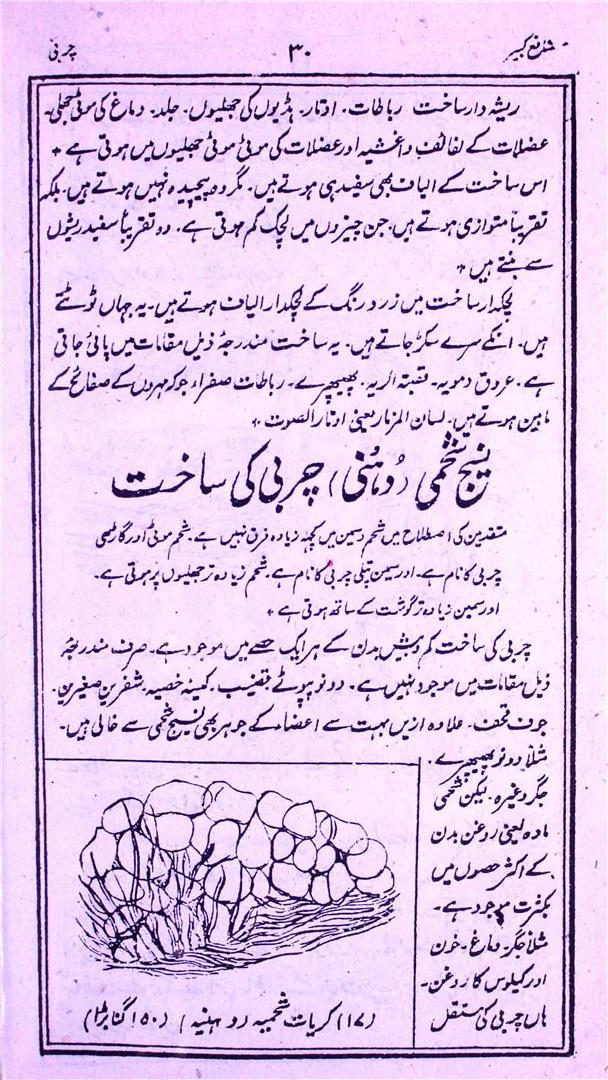 تشریح کبیر
۳۰
چربی
ریشہ دار ساخت رباطات۔ اوتار۔ ہڈیوں کی جھلیوں۔ جلد۔ دماغ کی موٹی جھلی۔
عضلات کے لفائف و اغشیہ اور عضلات کی موٹی موٹی جھلیوں میں ہوتی ہے +
اس ساخت کے الیاف بھی سفید ہی ہوتے ہیں۔ مگر وہ پیچیدہ نہیں ہوتے ہیں۔ بلکہ
تقریباً متوازی ہوتے ہیں۔ جن چیزوں میں لچک کم ہوتی ہے۔ وہ تقریباً سفید ریشوں
سے بنتے ہیں +
لچکدار ساخت میں زرد رنگ کے لچکدار الیاف ہوتے ہیں۔ یہ جہاں ٹوٹتے
ہیں۔ انکے سرے سکڑ جاتے ہیں۔ یہ ساخت مندرجۂ ذیل مقامات میں پائی جاتی
ہے۔ عروق دمویہ۔ قصبۃ الریہ۔ پھیپھڑے۔ رباطات صفراء جو کہ مہروں کے صفائح کے
مابین ہوتے ہیں۔ لسان المزمار یعنی اوتار الصوت +
نسیج شحمی (دُہنی) چربی کی ساخت
متقدمین کی اصطلاح میں شحم و سمین میں کچھ زیادہ فرق نہیں ہے۔ شحم موٹی اور گاڑھی
چربی کا نام ہے۔ اور سمین پتلی چربی کا نام ہے۔ شحم زیادہ تر جھلیوں پر ہوتی ہے۔
اور سمین زیادہ تر گوشت کے ساتھ ہوتی ہے +
چربی کی ساخت کم و بیش بدن کے ہر ایک حصے میں موجود ہے۔ صرف مندرجۂ
ذیل مقامات میں موجود نہیں ہے۔ دونو پپوٹے۔ قضیب۔ کیسۂ خصیہ۔ شفرین صغیرین۔
جوف قحف۔ علاوہ ازیں بہت سے اعضاء کے جوہر بھی نسیج شحمی سے خالی ہیں۔
مثلاً دونو پھیپھڑے۔
جگر وغیرہ۔ لیکن شحمی
مادہ یعنی روغن بدن
کے اکثر حصوں میں
بکثرت موجود ہے۔
مثلاً جگر دماغ۔ خون
اور کیلوس کا روغن۔
ہاں چربی کی مستقل
(۱۷) کریات شحمیہ دوہنیہ (۱۵۰ گنا بڑا)